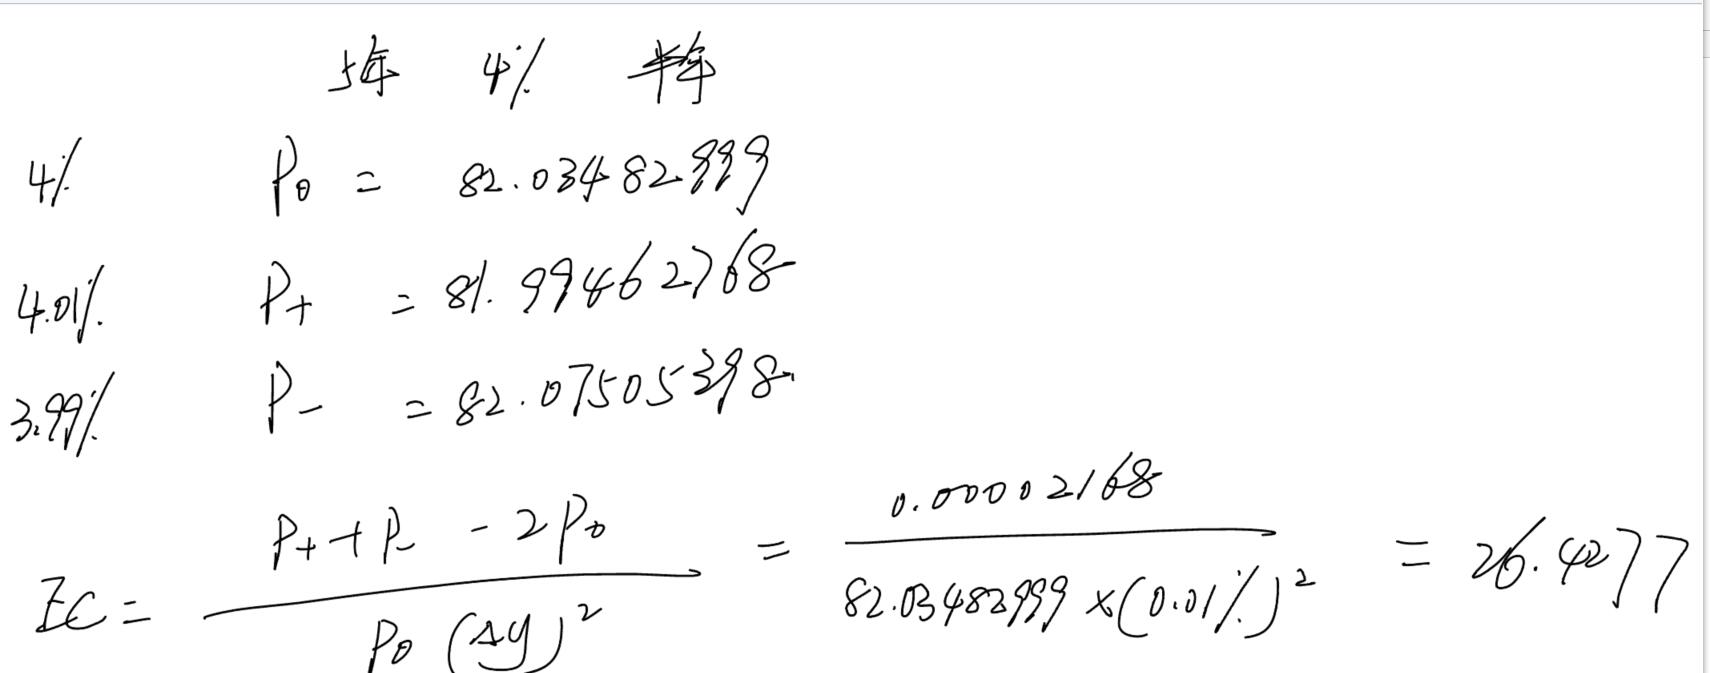 5年 4% 半年
4% P₀ = 82.03482999
4.01% P₊ = 81.99462768
3.99% P₋ = 82.07505398
EC = (P₊ + P₋ - 2P₀) / (P₀ (Δy)²) = 0.00002168 / (82.03482999 × (0.01%)²) = 26.4277